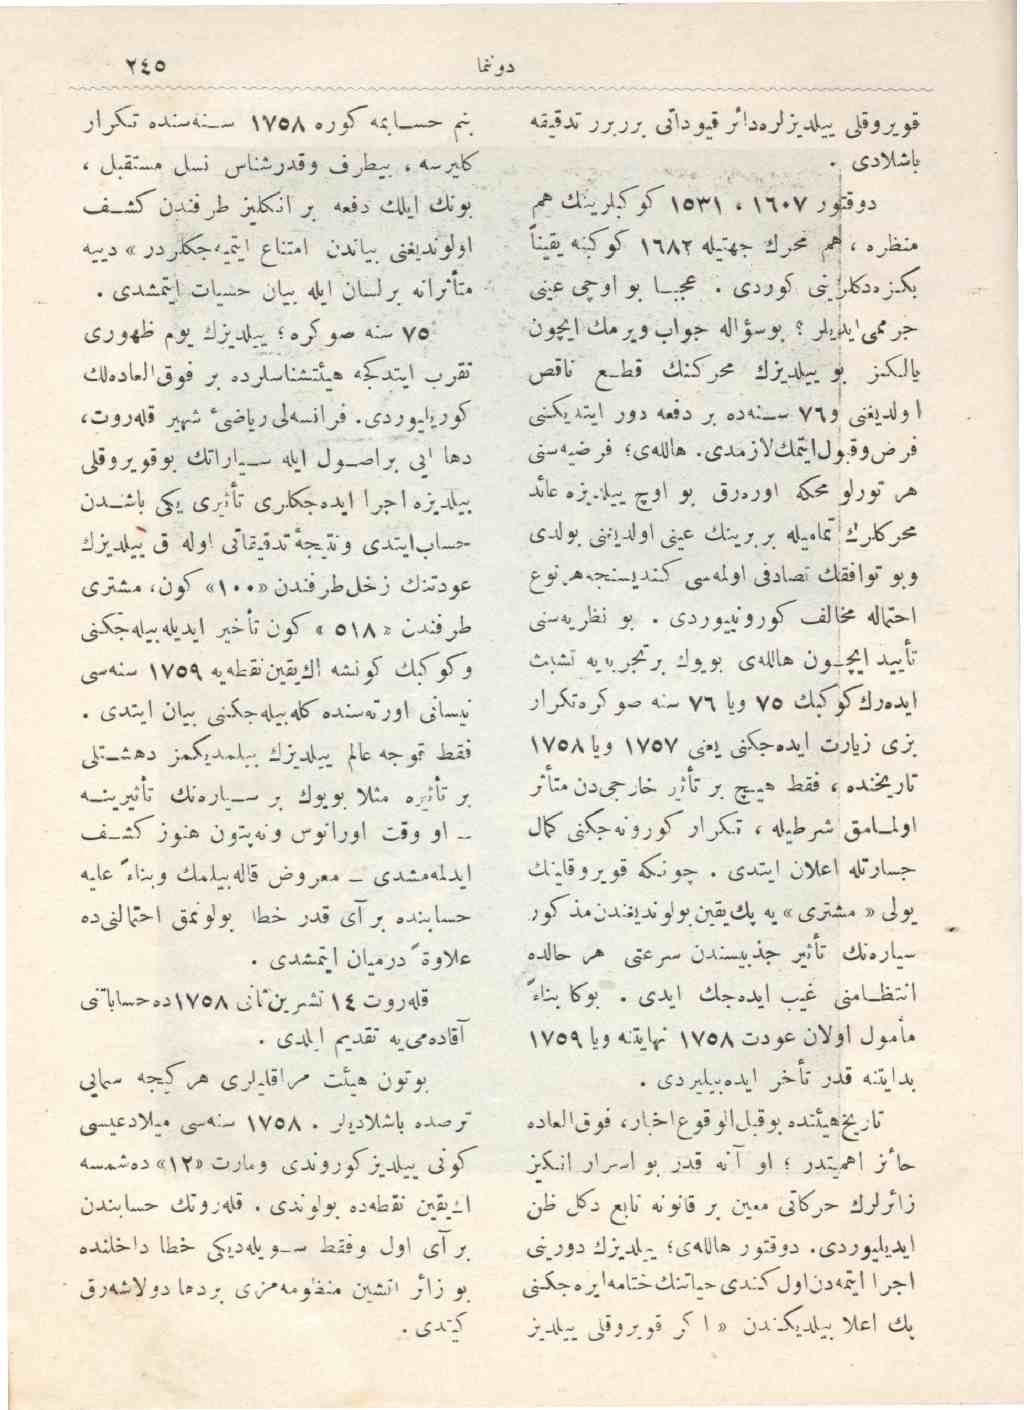 دوننما
٢٤٥
قویروقلی ییلدیزلره‌دائر قیوداتی بررر تدقیقه
باشلادی .
دوقتور ١٦٠٧ ، ١٥٣١ كوكبلرینك هم
منظره ، هم محرك جهتیله ١٦٨٢ كوكبنه یقیناً
بكزه‌دكلرینی كوردی . عجبا بو اوچی عینی
جرمی‌ایدیلر ؟ بوسؤاله جواب ویرمك ایچون
یالكز بو ییلدیزك محركنك قطع ناقص
اولدیغنی و٧٦ سنه‌ده بر دفعه دور ایتدیكنی
فرض‌وقبول‌ایتمك‌لازمدی. هاللەی؛ فرضیه‌سنی
هر تورلو محكه اوره‌رق بو اوچ ییلدیزه عائد
محركلرك تمامیله بربرینك عینی اولدیغنی بولدی
وبو توافقك تصادفی اولمه‌سی كندیسنجه‌هرنوع
احتماله مخالف كورونییوردی . بو نظریه‌سنی
تأیید ایچون هاللەی بویوك برتجربه‌یه تشبث
ایده‌رك‌كوكبك ٧٥ ویا ٧٦ سنه صوكره‌تكرار
بزی زیارت ایده‌جكنی یعنی ١٧٥٧ ویا ١٧٥٨
تاریخنده ، فقط هیچ بر تأثیر خارجی‌دن متأثر
اولمامق شرطیله ، تكرار كورونه‌جكنی كمال
جسارتله اعلان ایتدی . چونكه قویروقلینك
یولی « مشتری » یه پك‌یقین‌بولوندیغندن‌مذكور
سیاره‌نك تأثیر جذبیسندن سرعتی هر حالده
انتظامنی غیب ایده‌جك ایدی . بوكا بناءً
مأمول اولان عودت ١٧٥٨ نهایتنه ویا ١٧٥٩
بدایتنه قدر تأخر ایده‌بیلیردی .
تاریخ‌هیئتده بوقبل‌الوقوع‌اخبار، فوق‌العاده
حائز اهمیتدر ؛ او آنه قدر بو اسرار انكیز
زائرلرك حركاتی معین بر قانونه تابع دكل ظن
ایدیلیوردی. دوقتور هاللەی؛ ییلدیزك دورینی
اجرا ایتمه‌دن‌اول‌كندی حیاتنك‌ختامه‌ایره‌جكنی
پك اعلا بیلدیكندن « اكر قویروقلی ییلدیز
بنم حسابمه كوره ١٧٥٨ سنه‌سنده تكرار
كلیرسه ، بیطرف وقدرشناس نسل مستقبل ،
بونك ایلك دفعه بر انكلیز طرفندن كشف
اولوندیغنی بیاندن امتناع ایتمیه‌جكلردر » دییه
متأثرانه برلسان ایله بیان حسیات ایتمشدی .
٧٥ سنه صوكره ؛ ییلدیزك یوم ظهوری
تقرب ایتدكجه هیئتشناسلرده بر فوق‌العاده‌لك
كوریلیوردی. فرانسه‌لی ریاضیٔ شهیر قله‌روت،
دها ایی براصول ایله سیاراتك بوقویروقلی
ییلدیزه اجرا ایده‌جكلری تأثیری یكی باشدن
حساب‌ایتدی ونتیجهٔ تدقیقاتی اوله‌رق ییلدیزك
عودتنك زحل‌طرفندن «١٠٠» كون، مشتری
طرفندن « ٥١٨ » كون تأخیر ایدیله‌بیله‌جكنی
وكوكبك كونشه اك‌یقین‌نقطه‌یه ١٧٥٩ سنه‌سی
نیسانی اورته‌سنده كله‌بیله‌جكنی بیان ایتدی .
فقط توجه عالم ییلدیزك بیلمدیكمز دهشتلی
بر تأثیره مثلا بویوك بر سیاره‌نك تأثیرینه
ــ او وقت اورانوس ونه‌پتون هنوز كشف
ایدلمه‌مشدی ــ معروض قاله‌بیلمك وبناءً علیه
حسابنده بر آی قدر خطا بولونمق احتمالنی‌ده
علاوةً درمیان ایتمشدی .
قله‌روت ١٤ تشرین‌ثانی ١٧٥٨ده‌حساباتنی
آقاده‌می‌یه تقدیم ایلدی .
بوتون هیئت مراقلیلری هركیجه سمایی
ترصده باشلادیلر . ١٧٥٨ سنه‌سی میلادعیسی
كونی ییلدیزكوروندی ومارت «١٢» ده‌شمسه
اك‌یقین نقطه‌ده بولوندی . قله‌روتك حسابندن
بر آی اول وفقط سویله‌دیكی خطا داخلنده
بو زائر آتشین منظومه‌مزی بردها دولاشه‌رق
كیتدی .